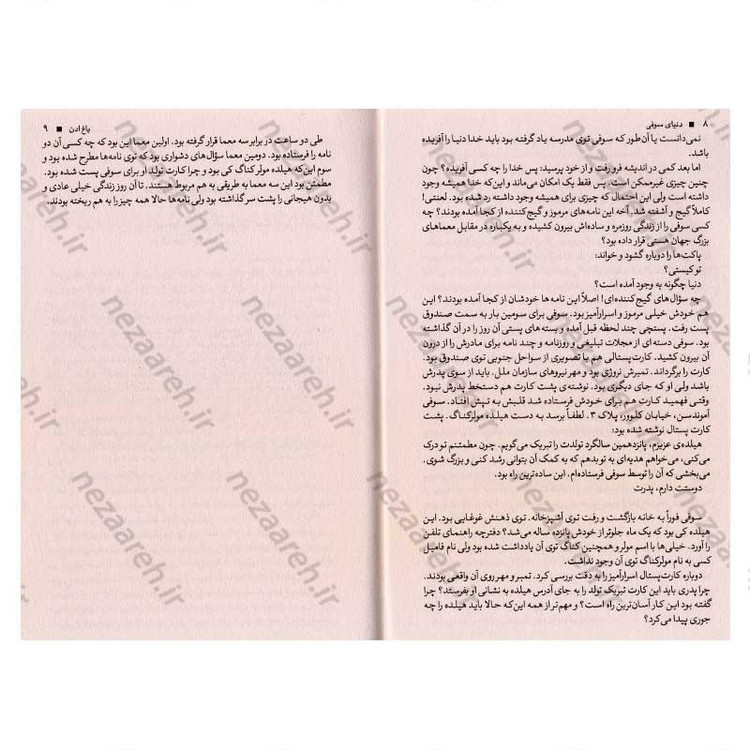 ۸ ■ دنیای سوفی
نمی‌دانست یا آن‌طور که سوفی توی مدرسه یاد گرفته بود باید خدا دنیا را آفریده
باشد.
اما بعد کمی در اندیشه فرو رفت و از خود پرسید: پس خدا را چه کسی آفریده؟ چون
چنین چیزی غیرممکن است. پس فقط یک امکان می‌ماند و این‌که خدا همیشه وجود
داشته است ولی این احتمال که چیزی برای همیشه وجود داشته رد شده بود. لعنتی!
کاملاً گیج و آشفته شد. آخه این نامه‌های مرموز و گیج‌کننده از کجا آمده بودند؟ چه
کسی سوفی را از زندگی روزمره و ساده‌اش بیرون کشیده و به یکباره در مقابل معماهای
بزرگ جهان هستی قرار داده بود؟
پاکت‌ها را دوباره گشود و خواند:
تو کیستی؟
دنیا چگونه به وجود آمده است؟
چه سؤال‌های گیج‌کننده‌ای! اصلاً این نامه‌ها خودشان از کجا آمده بودند؟ این
هم خودش خیلی مرموز و اسرارآمیز بود. سوفی برای سومین بار به سمت صندوق
پست رفت. پستچی چند لحظه قبل آمده و بسته های پستی آن روز را در آن گذاشته
بود. سوفی دسته ای از مجلات تبلیغی و روزنامه و چند نامه برای مادرش را از درون
آن بیرون کشید. کارت‌پستالی هم با تصویری از سواحل جنوبی توی صندوق بود.
کارت را برگرداند. تمبرش نروژی بود و مهر نیروهای سازمان ملل. باید از سوی پدرش
باشد ولی او که جای دیگری بود. نوشته‌ی پشت کارت هم دستخط پدرش نبود.
وقتی فهمید کارت هم برای خودش فرستاده شد قلبش به تپش افتاد. سوفی
آموندسن، خیابان کلوور، پلاک ۳. لطفاً برسد به دست هیلده مولرکناگ. پشت
کارت پستال نوشته شده بود:
هیلده‌ی عزیزم، پانزدهمین سالگرد تولدت را تبریک می‌گویم. چون مطمئنم تو درک
می‌کنی، می‌خواهم هدیه‌ای به تو بدهم که به کمک آن بتوانی رشد کنی و بزرگ شوی.
می‌بخشی که آن را توسط سوفی فرستاده‌ام. این ساده‌ترین راه بود.
دوستت دارم، پدرت
سوفی فوراً به خانه بازگشت و رفت توی آشپزخانه. توی ذهنش غوغایی بود. این
هیلده کی بود که یک ماه جلوتر از خودش پانزده ساله می‌شد؟ دفترچه راهنمای تلفن
را آورد. خیلی‌ها با اسم مولر و همچنین کناگ توی آن یادداشت شده بود ولی نام فامیل
کسی به نام مولرکناگ توی آن وجود نداشت.
دوباره کارت‌پستال اسرارآمیز را به دقت بررسی کرد. تمبر و مهر روی آن واقعی بودند.
چرا پدری باید این کارت تبریک تولد را به جای آدرس هیلده به نشانی او بفرستد؟ چرا
گفته بود این کار آسان‌ترین راه است؟ و مهم‌تر از همه این‌که حالا باید هیلده را چه
جوری پیدا می‌کرد؟
باغ ادن ■ ۹
طی دو ساعت در برابر سه معما قرار گرفته بود. اولین معما این بود که چه کسی آن دو
نامه را فرستاده بود. دومین معما سؤال‌های دشواری بود که توی نامه‌ها مطرح شده بود و
سوم این‌که هیلده مولر کناگ کی بود و چرا کارت تولد او برای سوفی پست شده بود.
مطمئن بود این سه معما به طریقی به هم مربوط هستند. تا آن روز زندگی خیلی عادی و
بدون هیجانی را پشت سر گذاشته بود ولی نامه‌ها حالا همه چیز را به هم ریخته بودند.
nezaareh.ir